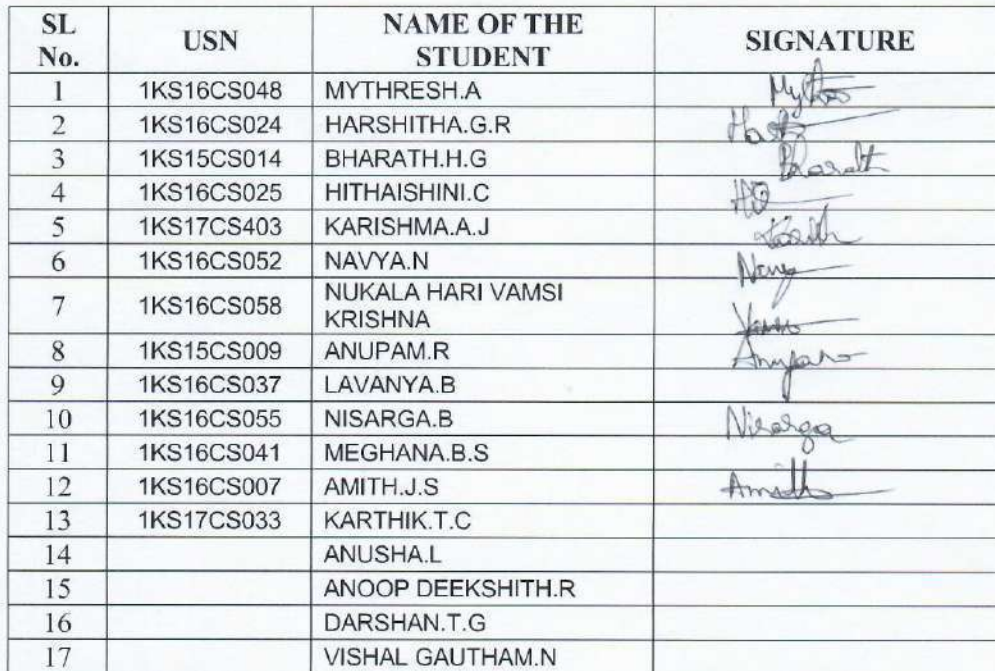 SL No. USN NAME OF THE STUDENT SIGNATURE
1 1KS16CS048 MYTHRESH.A
2 1KS16CS024 HARSHITHA.G.R
3 1KS15CS014 BHARATH.H.G Bharath
4 1KS16CS025 HITHAISHINI.C
5 1KS17CS403 KARISHMA.A.J
6 1KS16CS052 NAVYA.N
7 1KS16CS058 NUKALA HARI VAMSI
KRISHNA
8 1KS15CS009 ANUPAM.R
9 1KS16CS037 LAVANYA.B
10 1KS16CS055 NISARGA.B Nisarga
11 1KS16CS041 MEGHANA.B.S
12 1KS16CS007 AMITH.J.S Amith
13 1KS17CS033 KARTHIK.T.C
14 ANUSHA.L
15 ANOOP DEEKSHITH.R
16 DARSHAN.T.G
17 VISHAL GAUTHAM.N